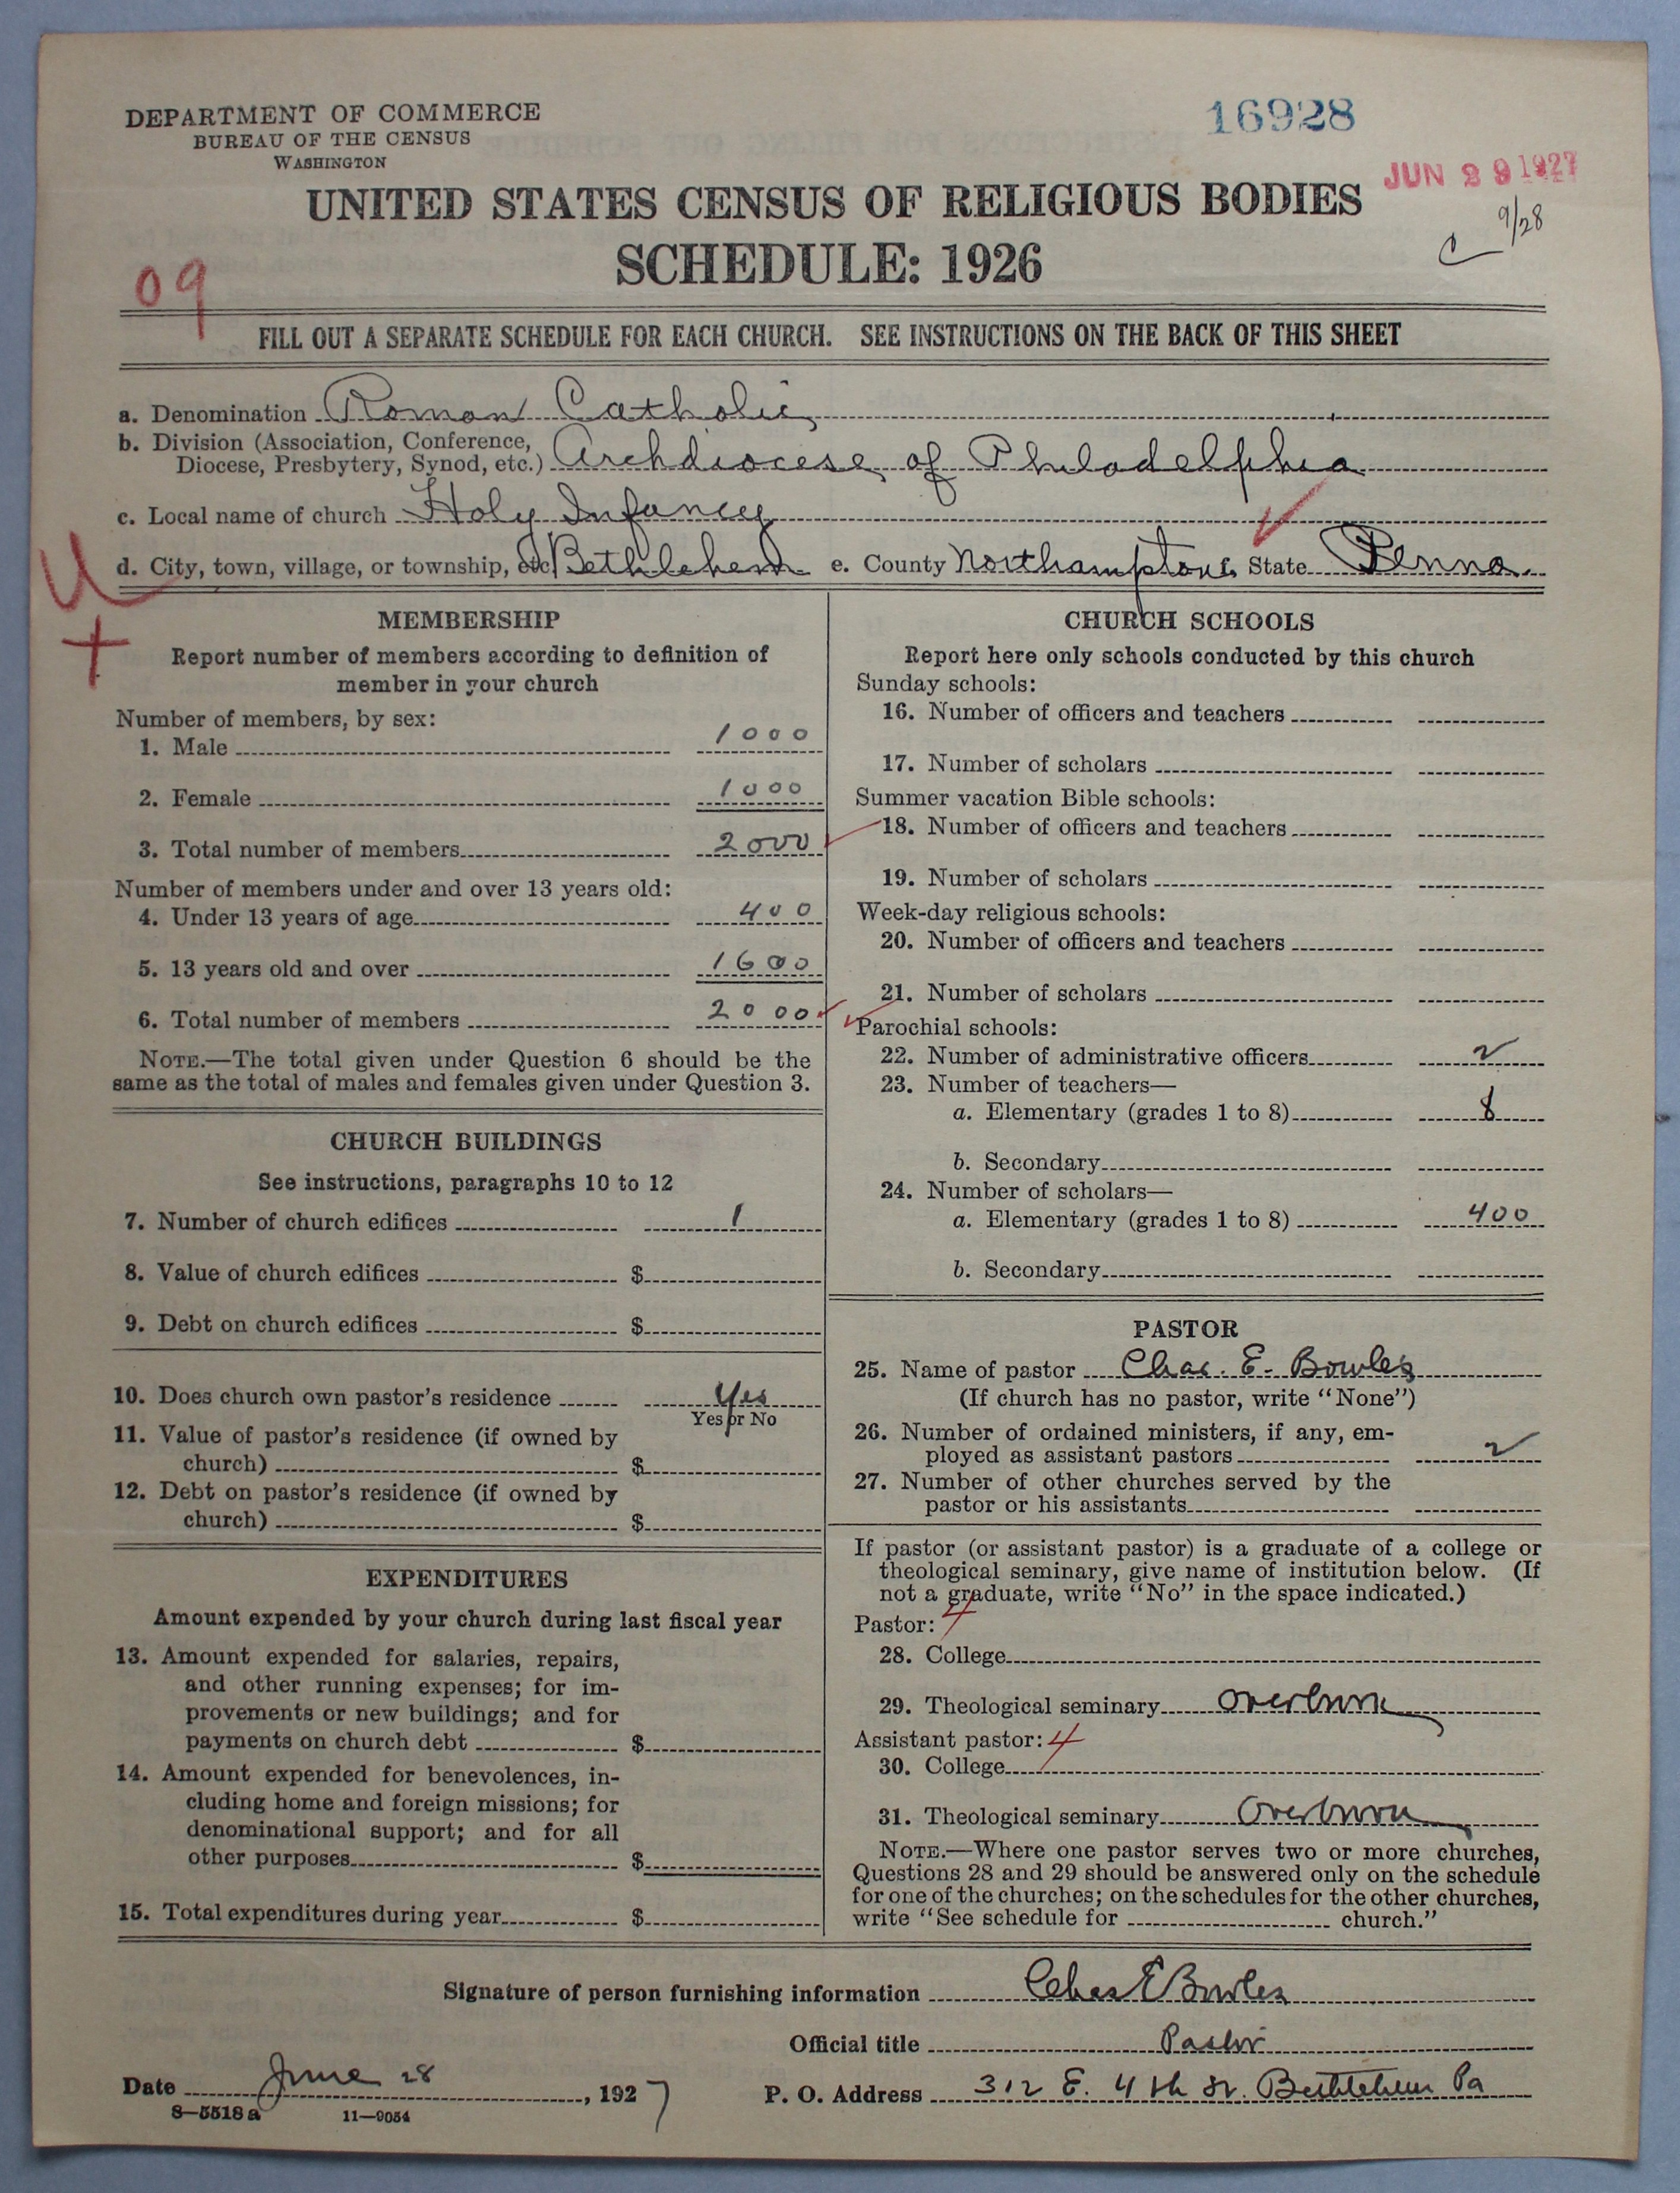 DEPARTMENT OF COMMERCE
BUREAU OF THE CENSUS
WASHINGTON
16928
JUN 29 1927
UNITED STATES CENSUS OF RELIGIOUS BODIES
SCHEDULE: 1926
C 9/28
09
FILL OUT A SEPARATE SCHEDULE FOR EACH CHURCH. SEE INSTRUCTIONS ON THE BACK OF THIS SHEET
a. Denomination Roman Catholic
b. Division (Association, Conference,
Diocese, Presbytery, Synod, etc.) Archdiocese of Philadelphia
c. Local name of church Holy Infancy
d. City, town, village, or township, etc. Bethlehem e. County Northampton State Penna.
U
MEMBERSHIP
Report number of members according to definition of
member in your church
Number of members, by sex:
1. Male 1000
2. Female 1000
3. Total number of members 2000
Number of members under and over 13 years old:
4. Under 13 years of age 400
5. 13 years old and over 1600
6. Total number of members 2000
NOTE.—The total given under Question 6 should be the
same as the total of males and females given under Question 3.
CHURCH BUILDINGS
See instructions, paragraphs 10 to 12
7. Number of church edifices 1
8. Value of church edifices $
9. Debt on church edifices $
10. Does church own pastor's residence Yes
Yes or No
11. Value of pastor's residence (if owned by
church) $
12. Debt on pastor's residence (if owned by
church) $
EXPENDITURES
Amount expended by your church during last fiscal year
13. Amount expended for salaries, repairs,
and other running expenses; for im-
provements or new buildings; and for
payments on church debt $
14. Amount expended for benevolences, in-
cluding home and foreign missions; for
denominational support; and for all
other purposes $
15. Total expenditures during year $
CHURCH SCHOOLS
Report here only schools conducted by this church
Sunday schools:
16. Number of officers and teachers
17. Number of scholars
Summer vacation Bible schools:
18. Number of officers and teachers
19. Number of scholars
Week-day religious schools:
20. Number of officers and teachers
21. Number of scholars
Parochial schools:
22. Number of administrative officers 2
23. Number of teachers—
a. Elementary (grades 1 to 8) 8
b. Secondary
24. Number of scholars—
a. Elementary (grades 1 to 8) 400
b. Secondary
PASTOR
25. Name of pastor Chas. E. Bowles
(If church has no pastor, write "None")
26. Number of ordained ministers, if any, em-
ployed as assistant pastors 2
27. Number of other churches served by the
pastor or his assistants
If pastor (or assistant pastor) is a graduate of a college or
theological seminary, give name of institution below. (If
not a graduate, write "No" in the space indicated.)
Pastor: 4
28. College
29. Theological seminary Overbrook
Assistant pastor: 4
30. College
31. Theological seminary Overbrook
NOTE.—Where one pastor serves two or more churches,
Questions 28 and 29 should be answered only on the schedule
for one of the churches; on the schedules for the other churches,
write "See schedule for church."
Signature of person furnishing information Chas E Bowles
Official title Pastor
Date June 28, 1927 P. O. Address 312 E. 4th St. Bethlehem Pa
8—5518a 11—9054